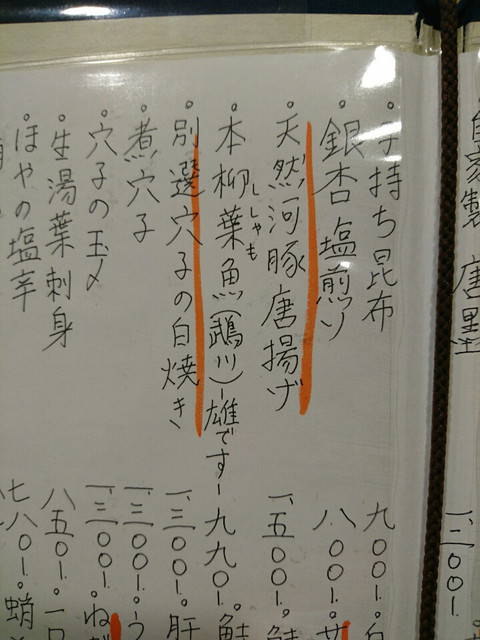 自家製 唐墨 一、三〇〇.
子持ち昆布 九〇〇.
銀杏塩煎り 八〇〇.
天然河豚唐揚げ 一、五〇〇.
本柳葉魚(鵡川)ー雄ですー 九九〇.
ししゃも
別選穴子の白焼き 一、三〇〇. 肝
煮穴子 一、三〇〇. う
穴子の玉〆 一、三〇〇. ねぎ
生湯葉刺身 八五〇. 一口
ほやの塩辛 七八〇. 蛸